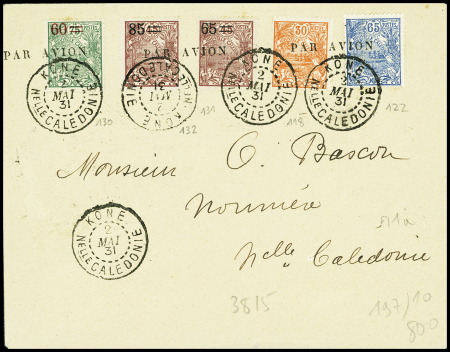 60 75 85 45 65 45 30 65
PAR AVION PAR AVION PAR AVION
KONE 2 MAI 31 Nelle CALEDONIE
KONE 2 MAI 31 Nelle CALEDONIE
KONE 2 MAI 31 Nelle CALEDONIE
KONE 2 MAI 31 Nelle CALEDONIE
130 132 131 118 122
Monsieur O. Bascou
Nouméa
Nelle Caledonie
KONE 2 MAI 31 Nelle CALEDONIE
3815
197/10
800